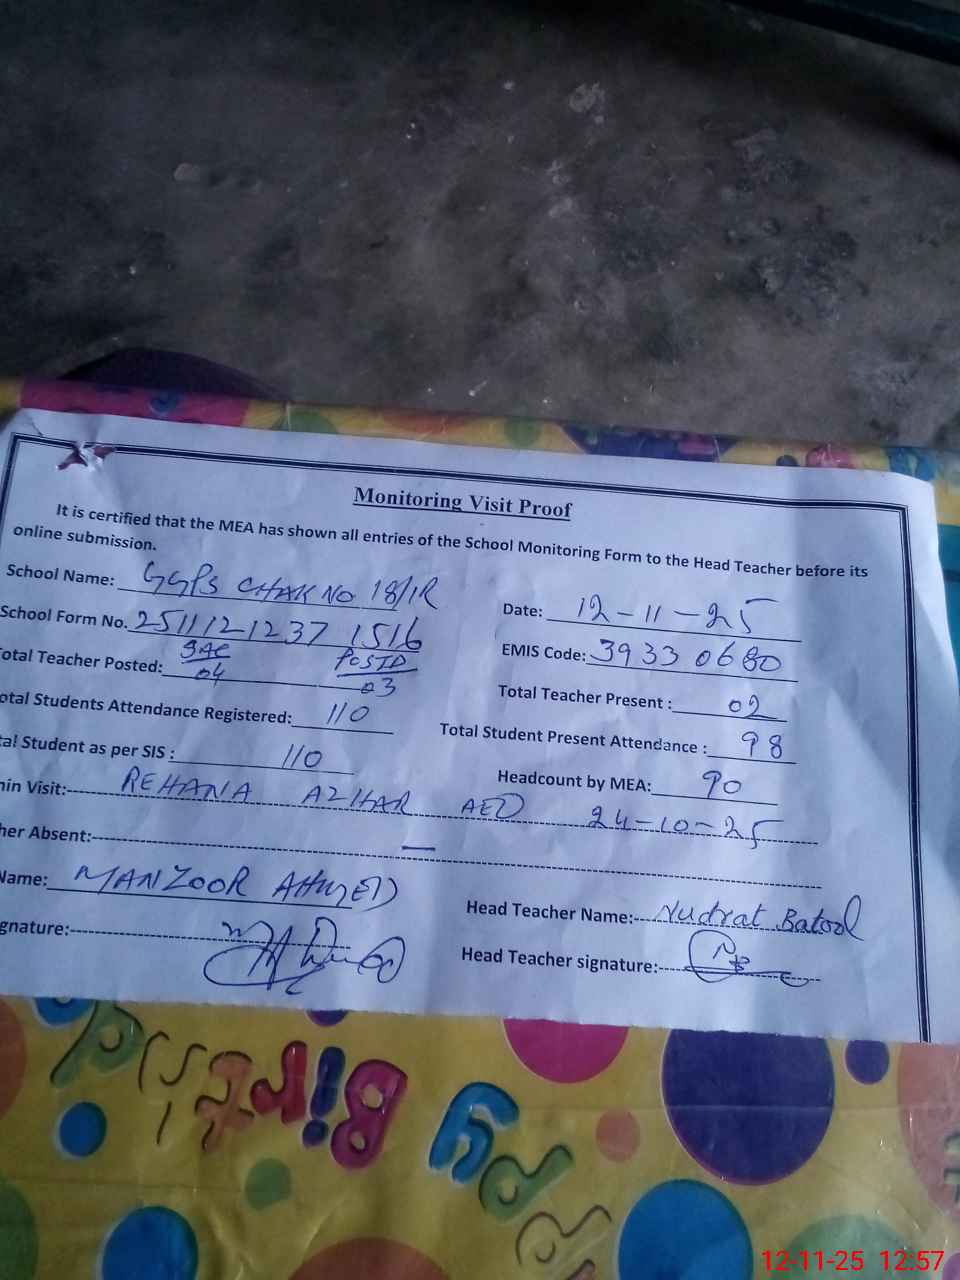 Monitoring Visit Proof
It is certified that the MEA has shown all entries of the School Monitoring Form to the Head Teacher before its
online submission.
School Name: GGPS CHAK NO 18/1R
Date: 12-11-25
School Form No. 251112 1237 1516
EMIS Code: 3933 0680
otal Teacher Posted: SAC 04 POSTD 03
Total Teacher Present : 02
otal Students Attendance Registered: 110
Total Student Present Attendance : 98
tal Student as per SIS : 110
Headcount by MEA: 90
min Visit: REHANA AZHAR AEO 24-10-25
her Absent: —
Name: MANZOOR AHMED
Head Teacher Name: Nudrat Batool
gnature:
Head Teacher signature:
Happy Birthd
12-11-25 12:57